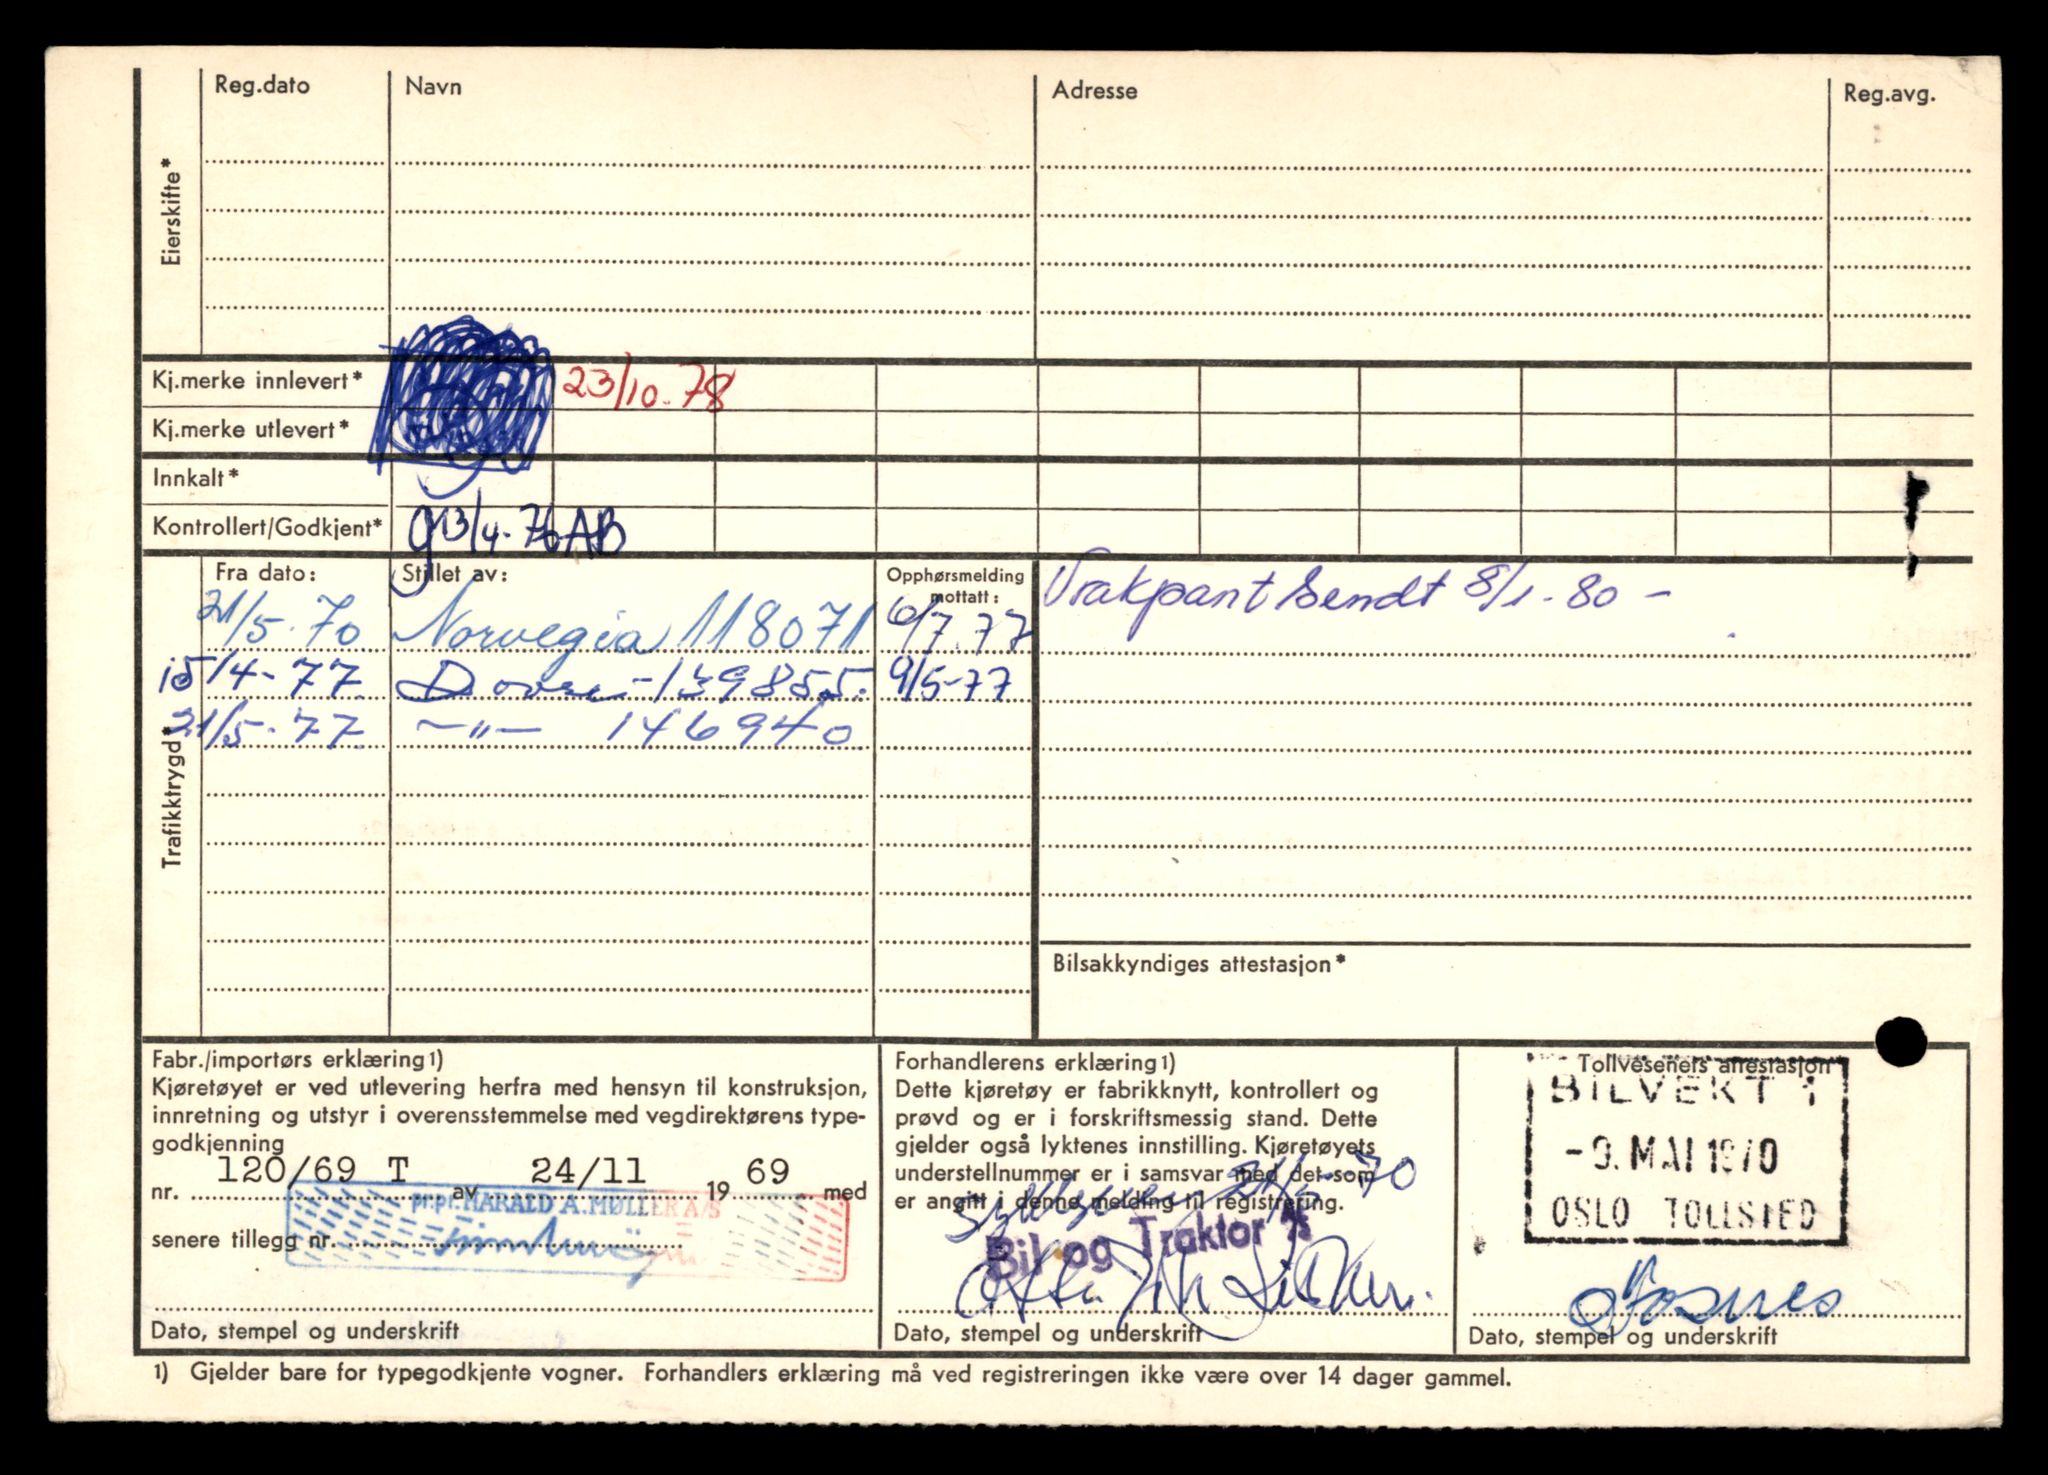 Reg.dato Navn Adresse Reg.avg.
Eierskifte*
Kj.merke innlevert* 23/10-78
Kj.merke utlevert*
Innkalt*
Kontrollert/Godkjent* g 13/4-76 AB
Trafikktrygd*
Fra dato: Stillet av: Opphørsmelding mottatt:
21/5-70 Norvegia 118071 6/7.77
15/4-77 Dovre-139855. 9/5-77
21/5-77. -"- 146940
Vrakpant sendt 8/1-80 -
Bilsakkyndiges attestasjon*
Fabr./importørs erklæring1)
Kjøretøyet er ved utlevering herfra med hensyn til konstruksjon,
innretning og utstyr i overensstemmelse med vegdirektørens type-
godkjenning
nr. 120/69 T av 24/11 1969 med
pr.pr. HARALD A. MØLLER A/S
senere tillegg nr.
Dato, stempel og underskrift
Forhandlerens erklæring1)
Dette kjøretøy er fabrikknytt, kontrollert og
prøvd og er i forskriftsmessig stand. Dette
gjelder også lyktenes innstilling. Kjøretøyets
understellnummer er i samsvar med det som
er angitt i denne melding til registrering.
21/5-70
Bil og Traktor A/S
Dato, stempel og underskrift
Tollvesenets attestasjon
BILVEKT 1
-9. MAI 1970
OSLO TOLLSTED
Dato, stempel og underskrift
1) Gjelder bare for typegodkjente vogner. Forhandlers erklæring må ved registreringen ikke være over 14 dager gammel.